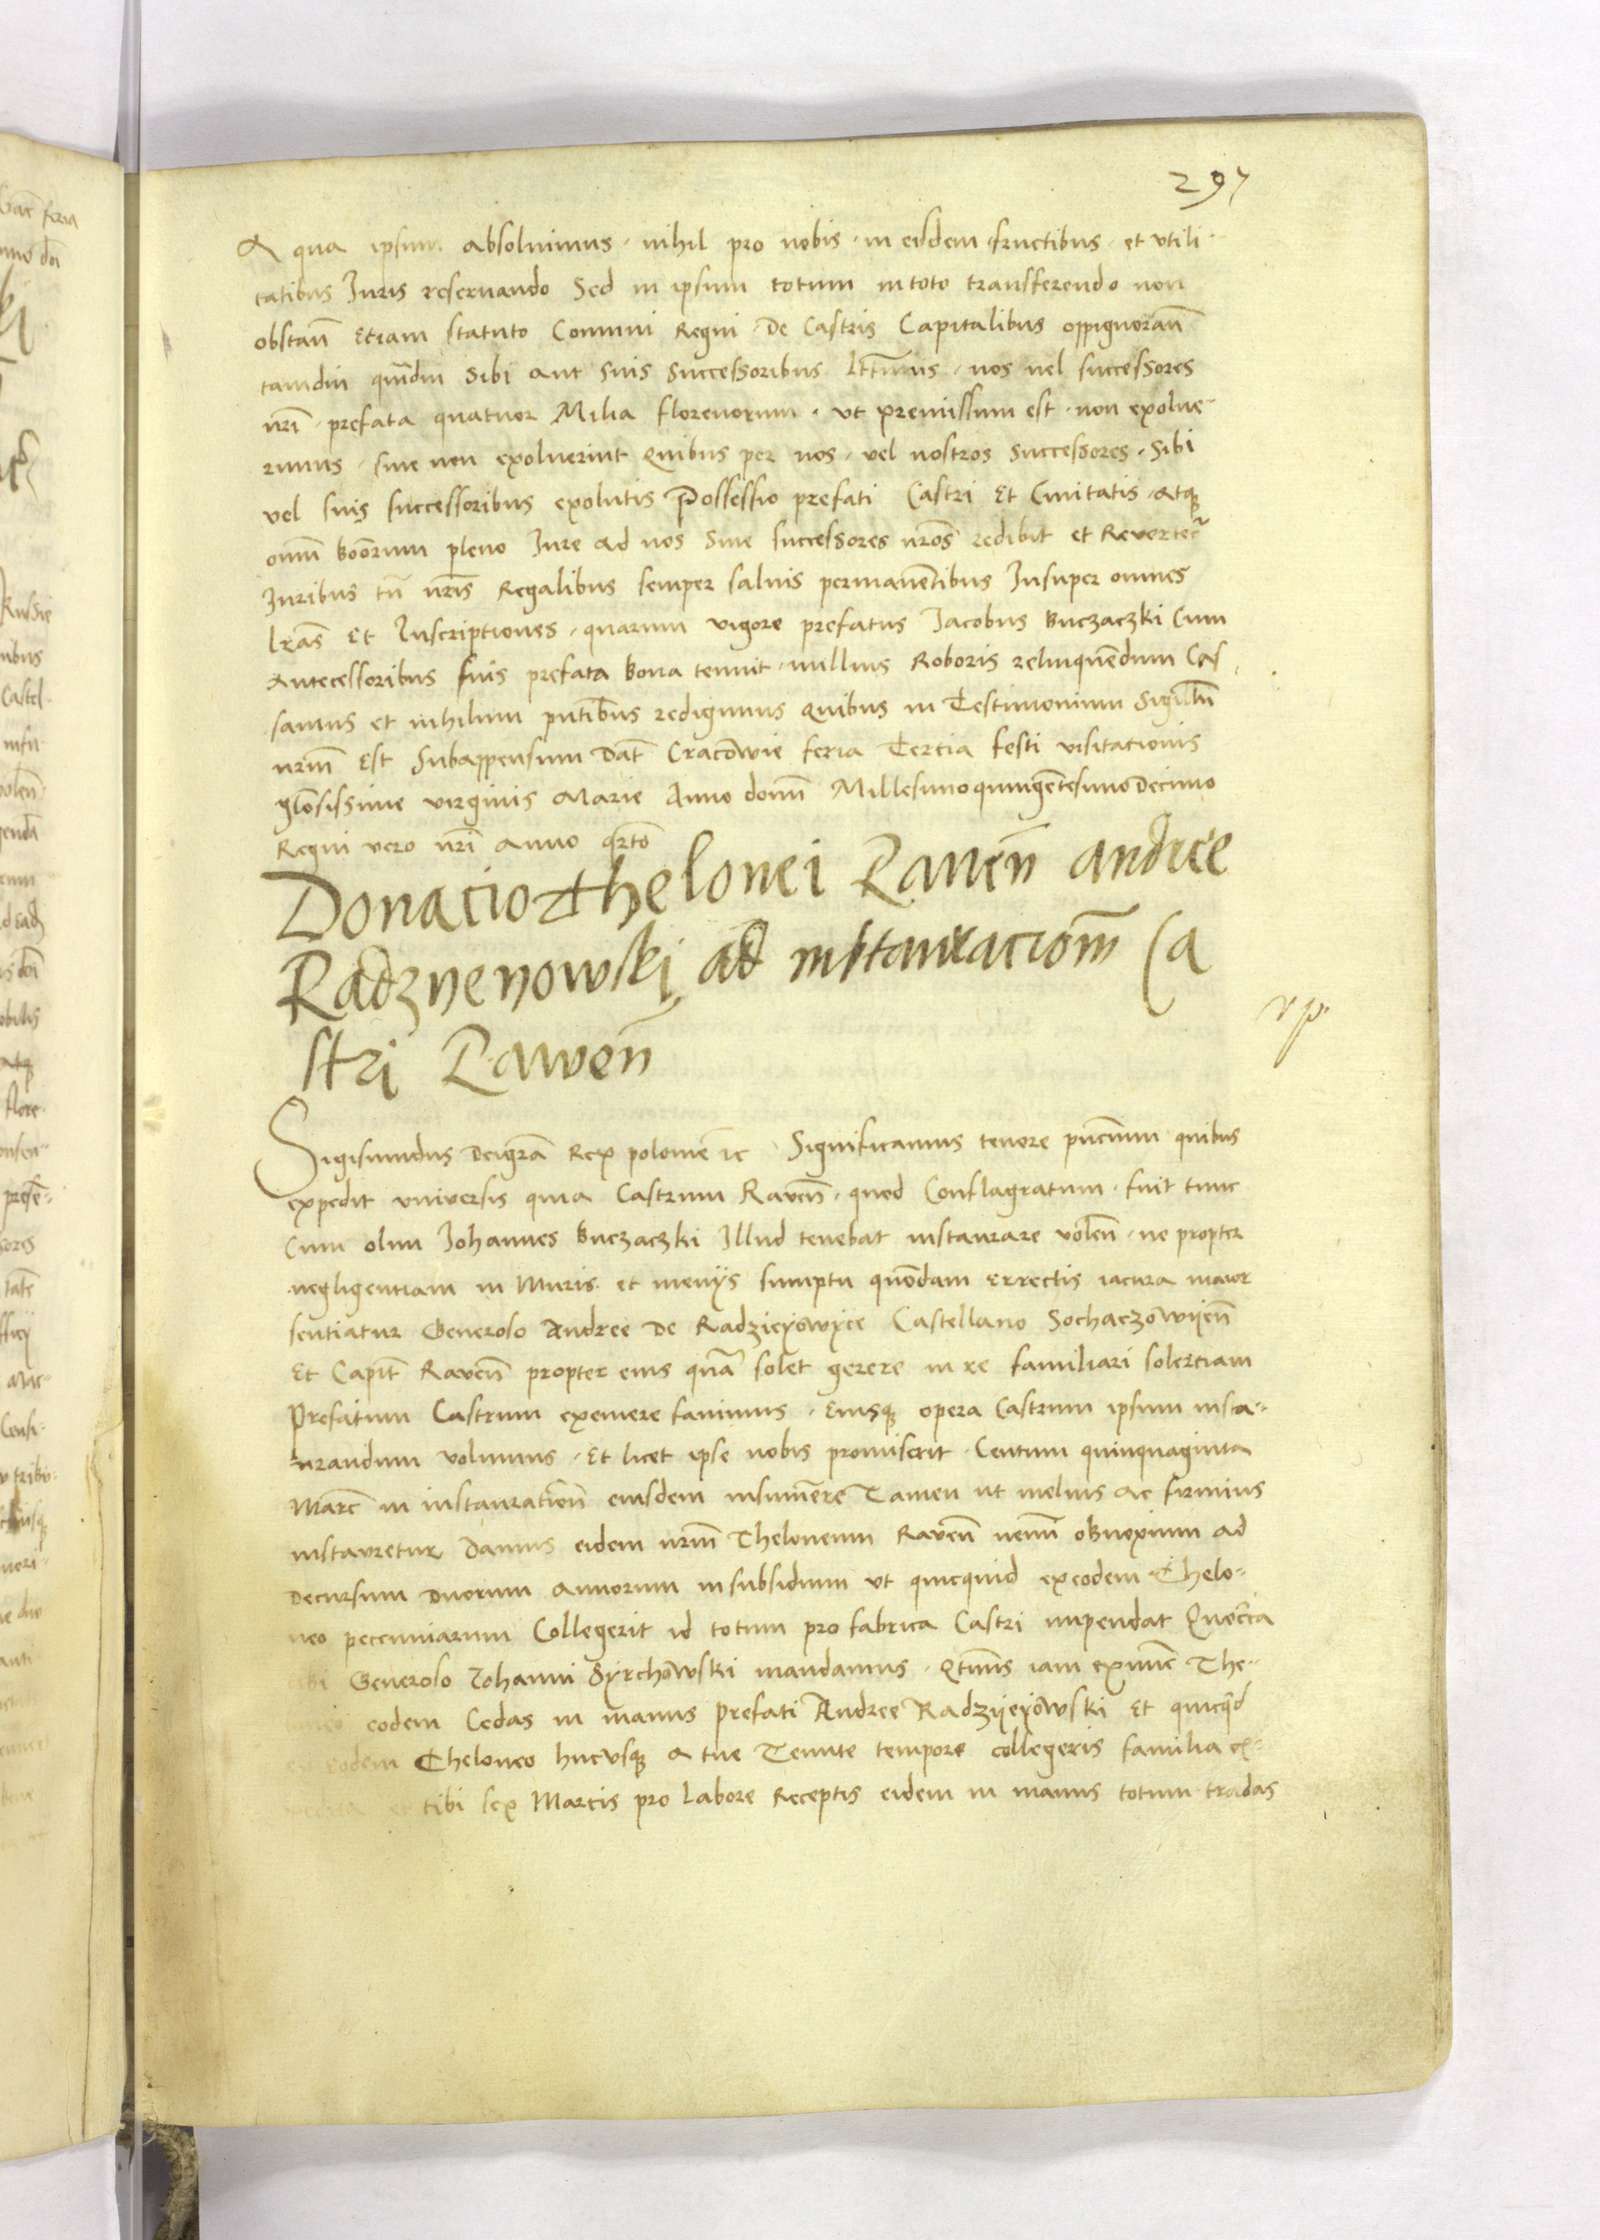 297
A qua ipsum absoluimus · nihil pro nobis · in eisdem fructibus · et vtili-
tatibus Juris reseruando Sed in ipsum totum in toto transferendo non
obstan̄ Etiam statuto Comuni Regni De Castris Capitalibus oppignoran̄
tamdiu qm̄diu Sibi aut suis Successoribus lttimis · nos vel successores
nr̄i · prefata quatuor Milia florenorum · vt premissum est · non exolue-
rimus · siue non exoluerint Quibus per nos · vel nostros Successores · Sibi
vel suis successoribus exolutis Possessio prefati Castri Et Ciuitatis · Atq
omīm boōrum pleno Jure ad nos Siue successores nr̄os redibit et Reuertet̄
Juribus tn̄ nr̄is Regalibus semper saluis permanētibus Insuper omnes
lr̄as Et Inscriptiones · quarum vigore prefatus Jacobus Buczaczki Cum
Antecessoribus suis prefata bona tenuit · nullius Roboris relinquēdum Cas-
samus et in nihilum pn̄tibus redigimus Quibus in Testimonium Sigillū
nr̄um Est Subappensum Dat̄ Cracōwie feria Tercia festi visitationis
glōsissime virginis Marie Anno domī Millesimoquingētesimo Decimo
Regni vero nr̄i anno qr̄to
Donacio Thelonei Rauen̄ andree
Radzyeyowski ad instauracionē Ca
stri Rawen̄
rp.
Sigismundus Dei gr̄a Rex polonie ꝛc Significamus tenore pn̄cium quibus
expedit vniuersis quia Castrum Raven̄ · quod Conflagratum · fuit tunc
Cum olim Johannes Buczaczki Illud tenebat instaurare volen̄ · ne propter
negligentiam in Muris · et menijs sumptu quōdam Errectis iactura maior
sentiatur Generoso Andree De Radzieyōwyce Castellano Sochaczōwijen̄
Et Capit̄ Raven̄ propter eius quā solet gerere in re familiari solertiam
Prefatum Castrum exemere fauimus · Eiusq opera Castrum ipsum insta-
urandum volumus · Et licet ipse nobis promiserit · Centum quinquaginta
Marc̄ in instauration̄ eiusdem insumēre Tamen ut melius ac firmius
instauretur Damus eidem nr̄m Theloneum Raven̄ nemī obnoxium ad
Decursum Duorum Annorum in subsidium vt quicquid ex eodem Thelo-
neo pecuniarum Collegerit id totum pro fabrica Castri impendat
tibi Generoso Johanni Syrchōwski mandamus · Qtinus iam The-
loneo eodem Cedas in manus prefati Andree Radzijeyōwski Et quicqd
ex eodem Theloneo hucusq A tue Tenute tempore collegeris familia ex-
et tibi sex Marcis pro labore Receptis eidem in manus totum tradas